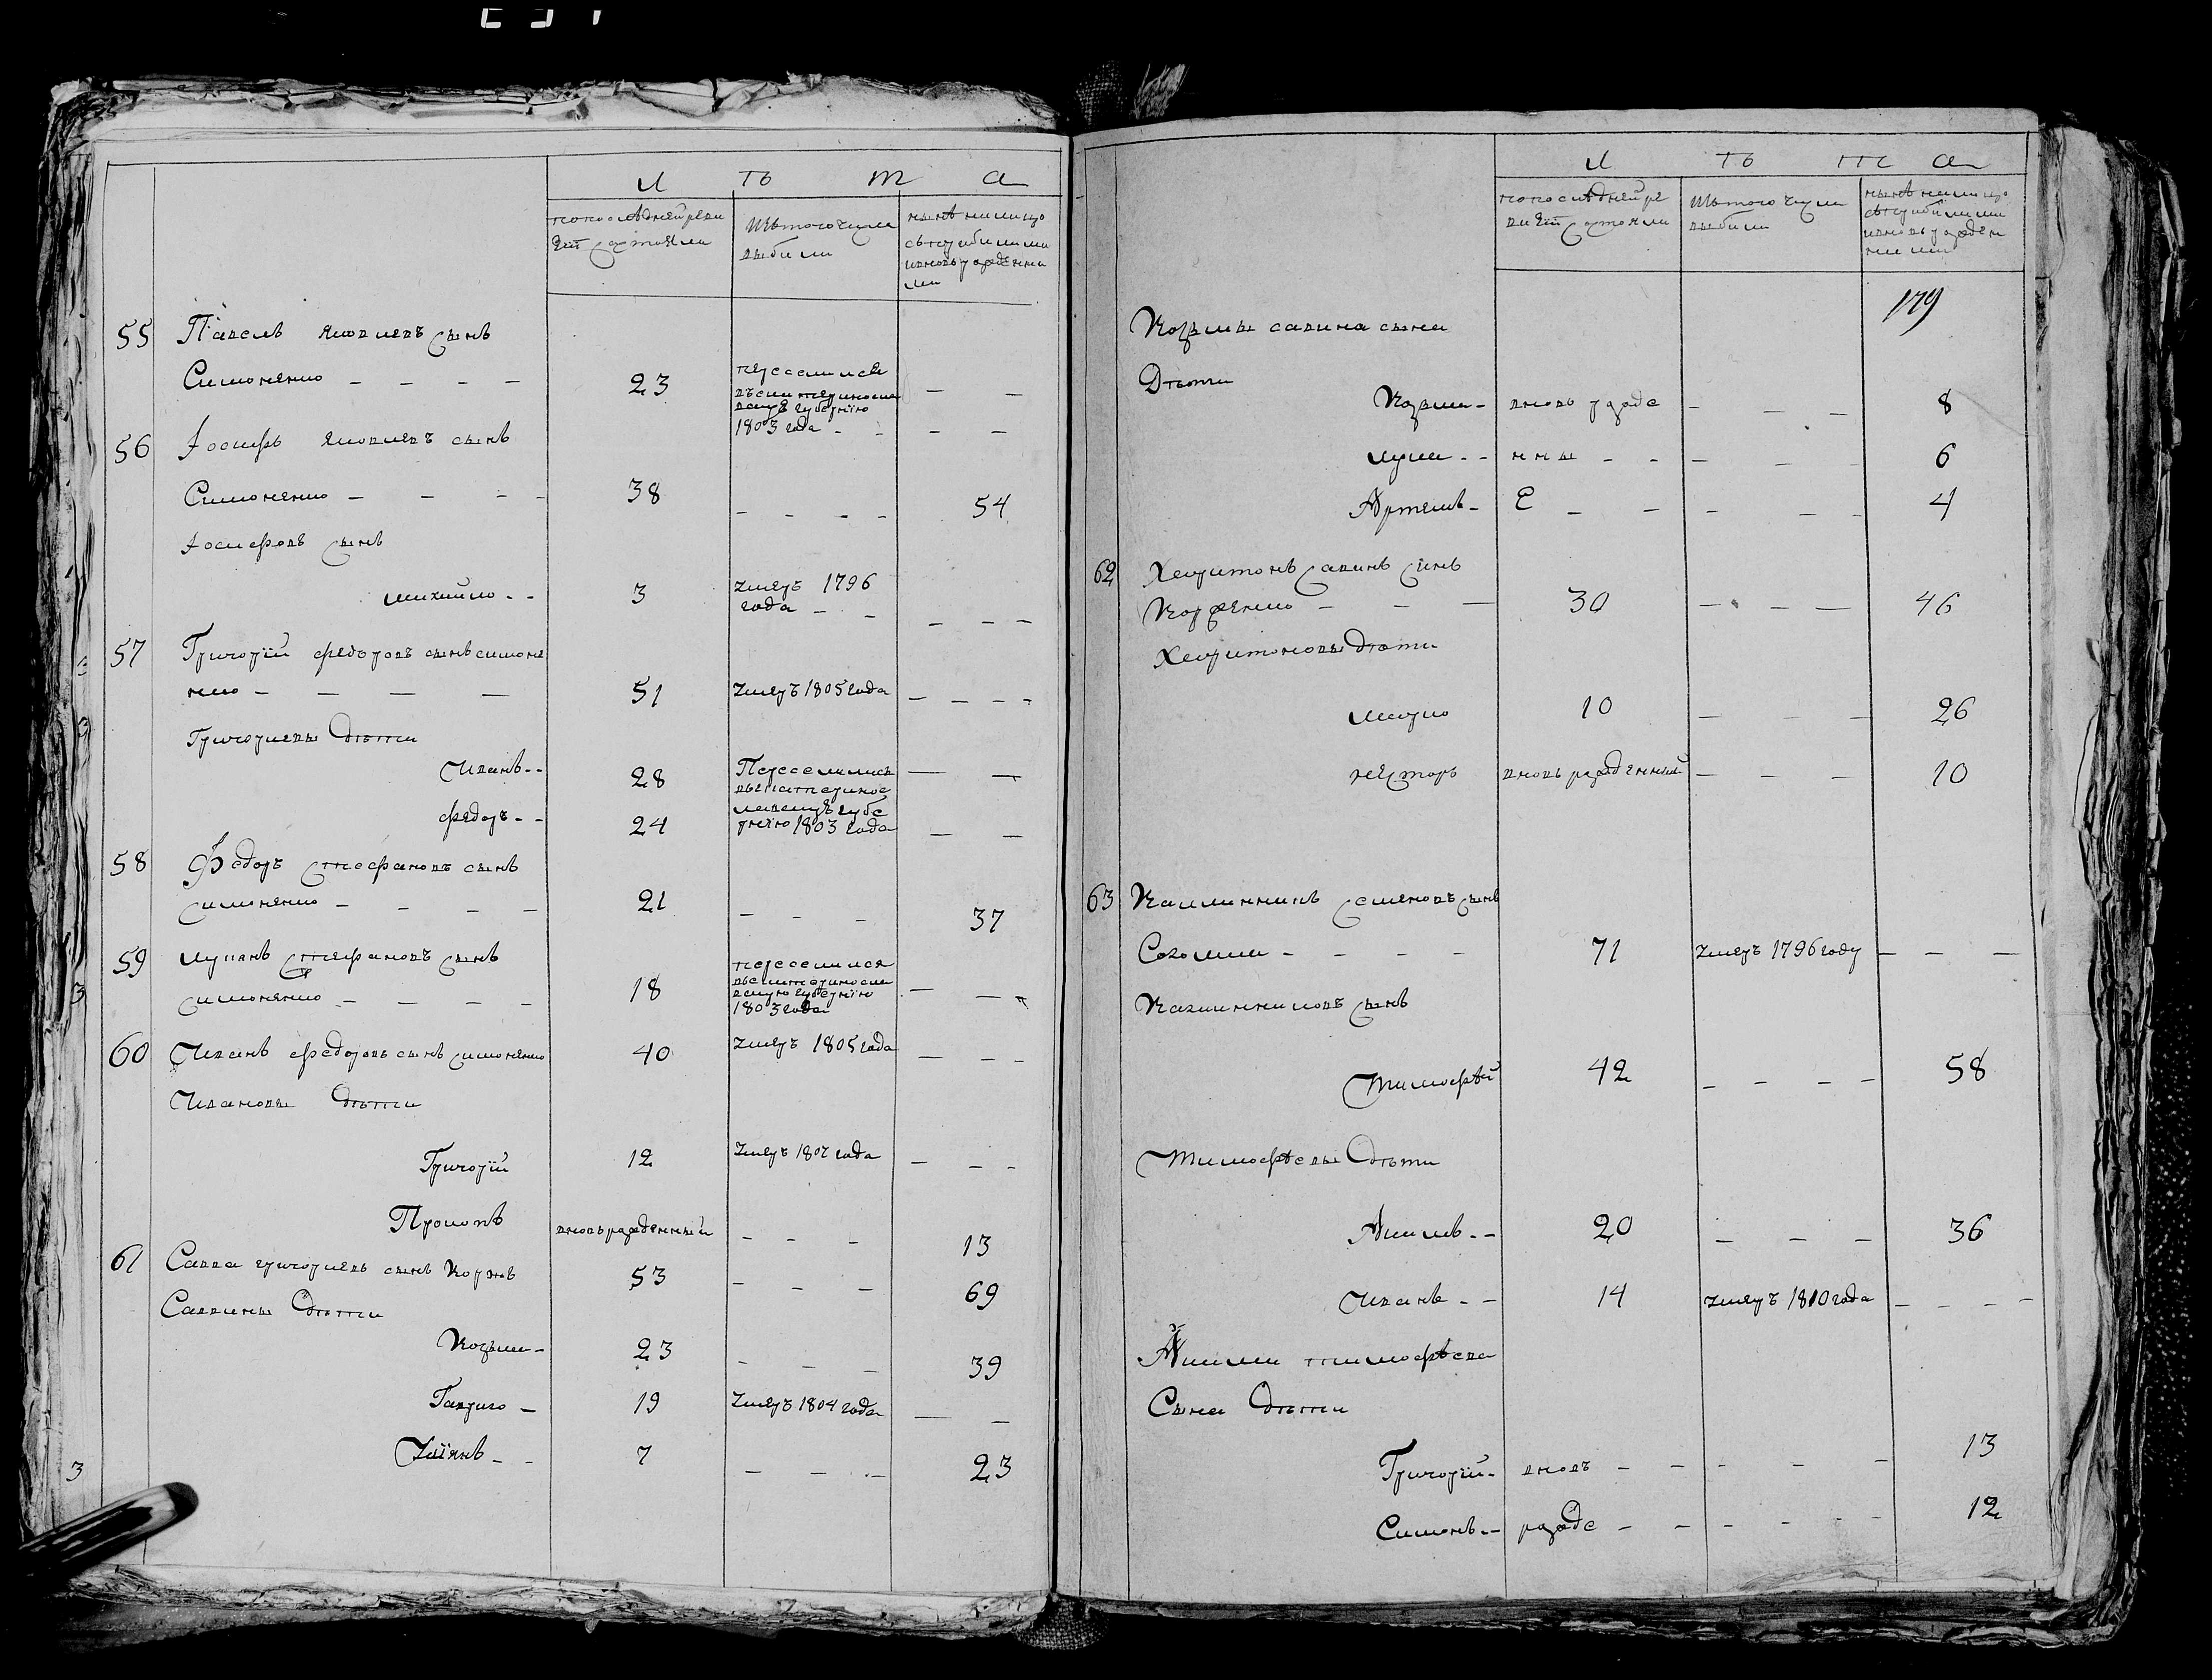 л ѣ т а
попоследней реви
зїй состояли
Изъ того числа
выбыли
ныне налицо
съ прибылыми
и вновь рожденны
ми
55 Павелъ яковлевъ сынъ
Симоненко - - - - 23 переселился
въ екатеринославскую губернїю
1803 года - -
56 Іосифъ яковлевъ сынъ
Симоненко - - - - 38 - - - - 54
Іосифовъ сынъ
михайло - - 3 умеръ 1796
года - - - - -
57 Григорїй федоровъ сынъ симоне
нко - - - - 51 умеръ 1805 года - - - -
Григориевы дѣти
Иванъ - - 28 Переселились
въ екатеринос
лавскую губе
федоръ - - 24 рнїю 1803 года - -
58 Федоръ стефановъ сынъ
симоненко - - - - 21 - - - 37
59 лукянъ стефановъ сынъ
симоненко - - - - 18 переселился
въ екатеринослав
скую губернїю
1803 года
60 Иванъ федоровъ сынъ симоненко 40 умеръ 1805 года - - -
Ивановы дѣти
Григорїй 12 умеръ 1807 года - - -
Прокопъ вновь рожденный - - - 13
61 Савва григориевъ сынъ Коржъ 53 - - - 69
Саввины дѣти
Козьма - 23 - - - 39
Гаврило - 19 умеръ 1804 года - -
Улїянъ - - 7 - - - 23
л ѣ т а
попоследней ре
визїй состояли
Изъ того числа
выбыли
ныне налицо
съ прибылыми
и вновь рожден
ными
179
Козьмы савина сына
Дѣти
Козьма - вновь рожде - - - 8
лука - - нны - - - - - 6
Артемъ - е - - - - - 4
62 Харитонъ Савинъ сынъ
Корженко - - - 30 - - - 46
Харитоновы дѣти
марко 10 - - - 26
несторъ вновь рожденный - - - 10
63 Калинникъ семеновъ сынъ
Сокол - - - - 71 умеръ 1796 году - - -
Калинниковъ сынъ
Тимофѣй 42 - - - - 58
Тимофѣевы дѣти
Акимъ - - 20 - - - 36
Иванъ - - 14 умеръ 1810 года - - - -
Акима тимофѣева
Сына дѣти
Григорїй - вновь - - - - - 13
Симонъ - рожде - - - - - - 12